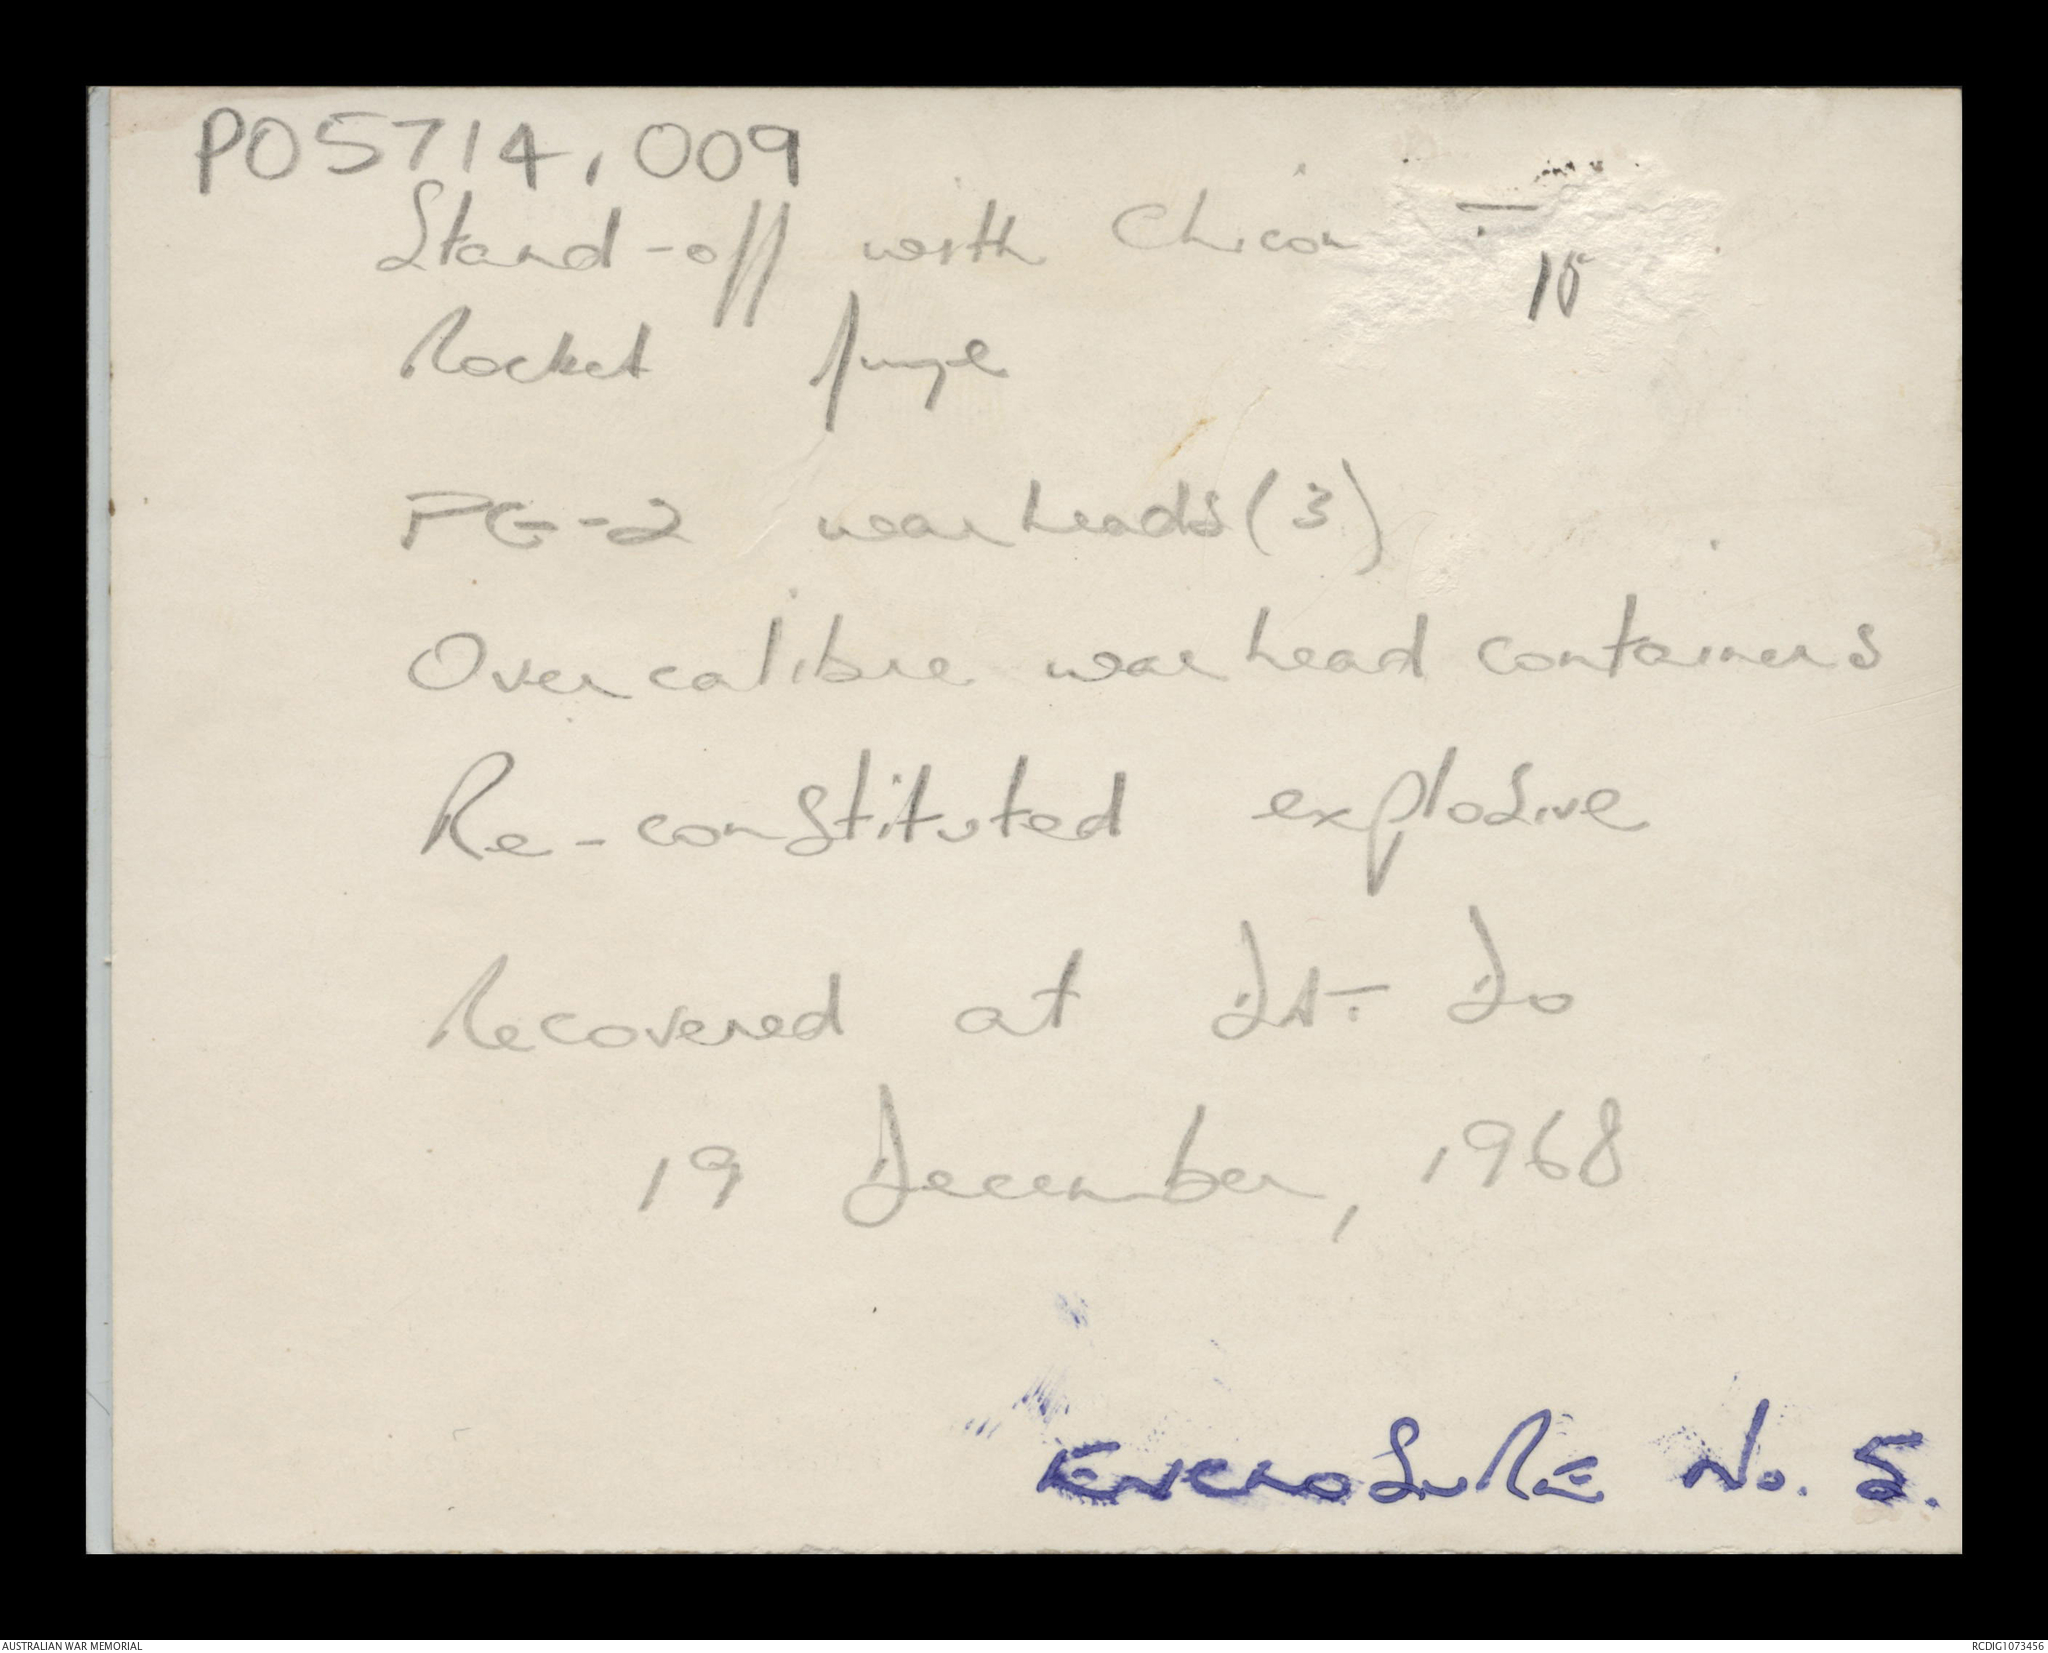 P05714.009
Stand-off with Chicom
15
Rocket fuze
PG-2 warheads (3)
Overcalibre warhead containers
Re-constituted explosive
Recovered at Dat Do
19 December, 1968
ENCLOSURE No. 5.
AUSTRALIAN WAR MEMORIAL
RCDIG1073456